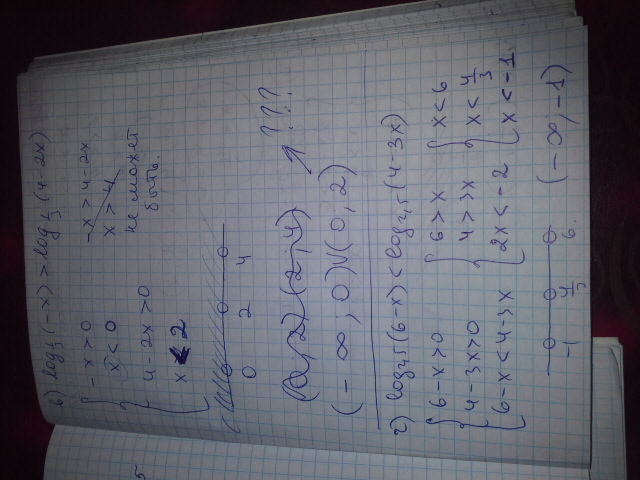 в) log⅓(-x) > log⅓(4-2x)
{ -x > 0
x < 0
4-2x > 0
x < 2
-x > 4-2x
x > 4
не может быть.
0 2 4
(0, 2) (2, 4)
(-∞; 0) V (0; 2) ↗ ???
г) log₂,₅(6-x) < log₂,₅(4-3x)
{ 6-x > 0 { 6 > x { x < 6
{ 4-3x > 0 { 4 > 3x { x < 4/3
{ 6-x < 4-3x { 2x < -2 { x < -1
-1 4/3 6. (-∞; -1)